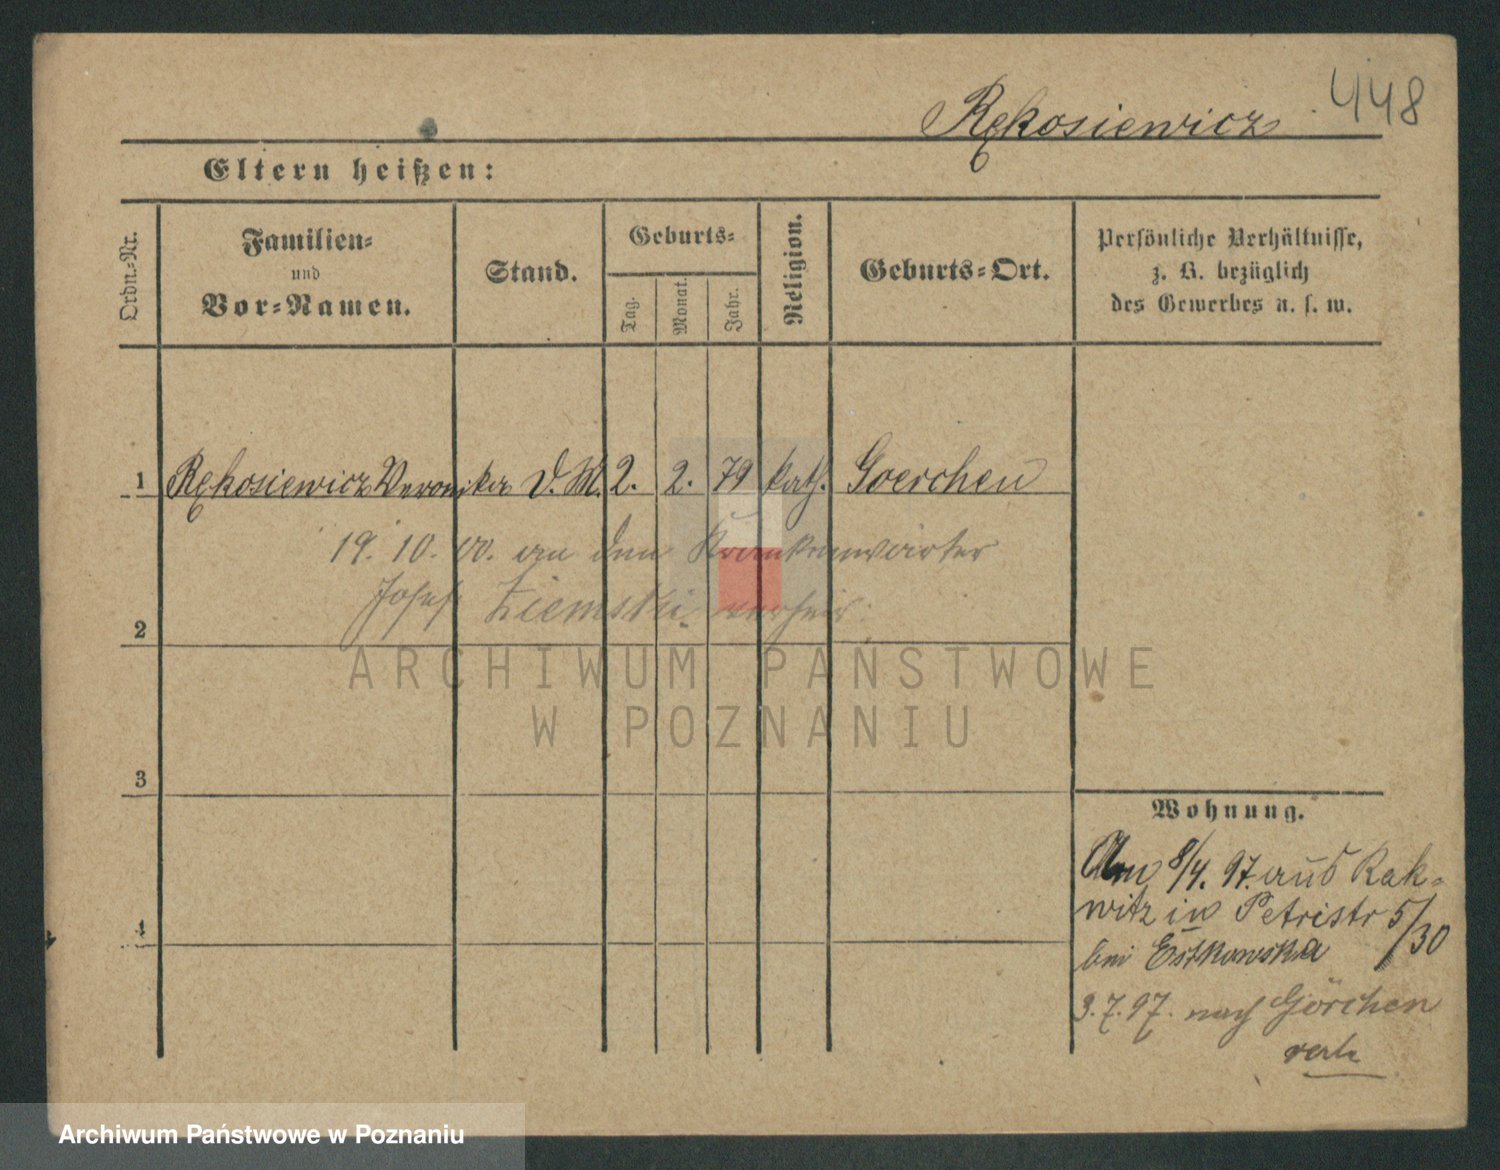 448
Rękosiewicz
Eltern heißen:
Ordn.-Nr.
Familien-
und
Vor-Namen.
Stand.
Geburts-
Tag.
Monat.
Jahr.
Religion.
Geburts-Ort.
Persönliche Verhältnisse,
z. B. bezüglich
des Gewerbes u. s. w.
1 Rękosiewicz Veronika D. M. 2. 2. 79 kath. Goerchen
19. 10. 00. an den Krankenwärter
Josef Ziemski verheir.
2
ARCHIWUM PAŃSTWOWE
W POZNANIU
3
Wohnung.
8/4. 97. aus Rak-
witz in Petristr 5/30
bei Estkowska
4
3.7.97. nach Görchen
Archiwum Państwowe w Poznaniu